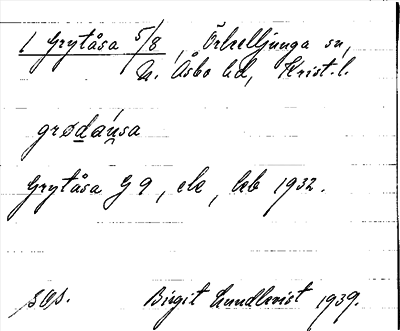 1 Grytåsa 5/8, Örkelljunga sn,
N. Åsbo hd, Krist. l.
grødáu̯sa
Grytåsa G 9, ek, kb 1932.
Birgit Lundkvist 1939.